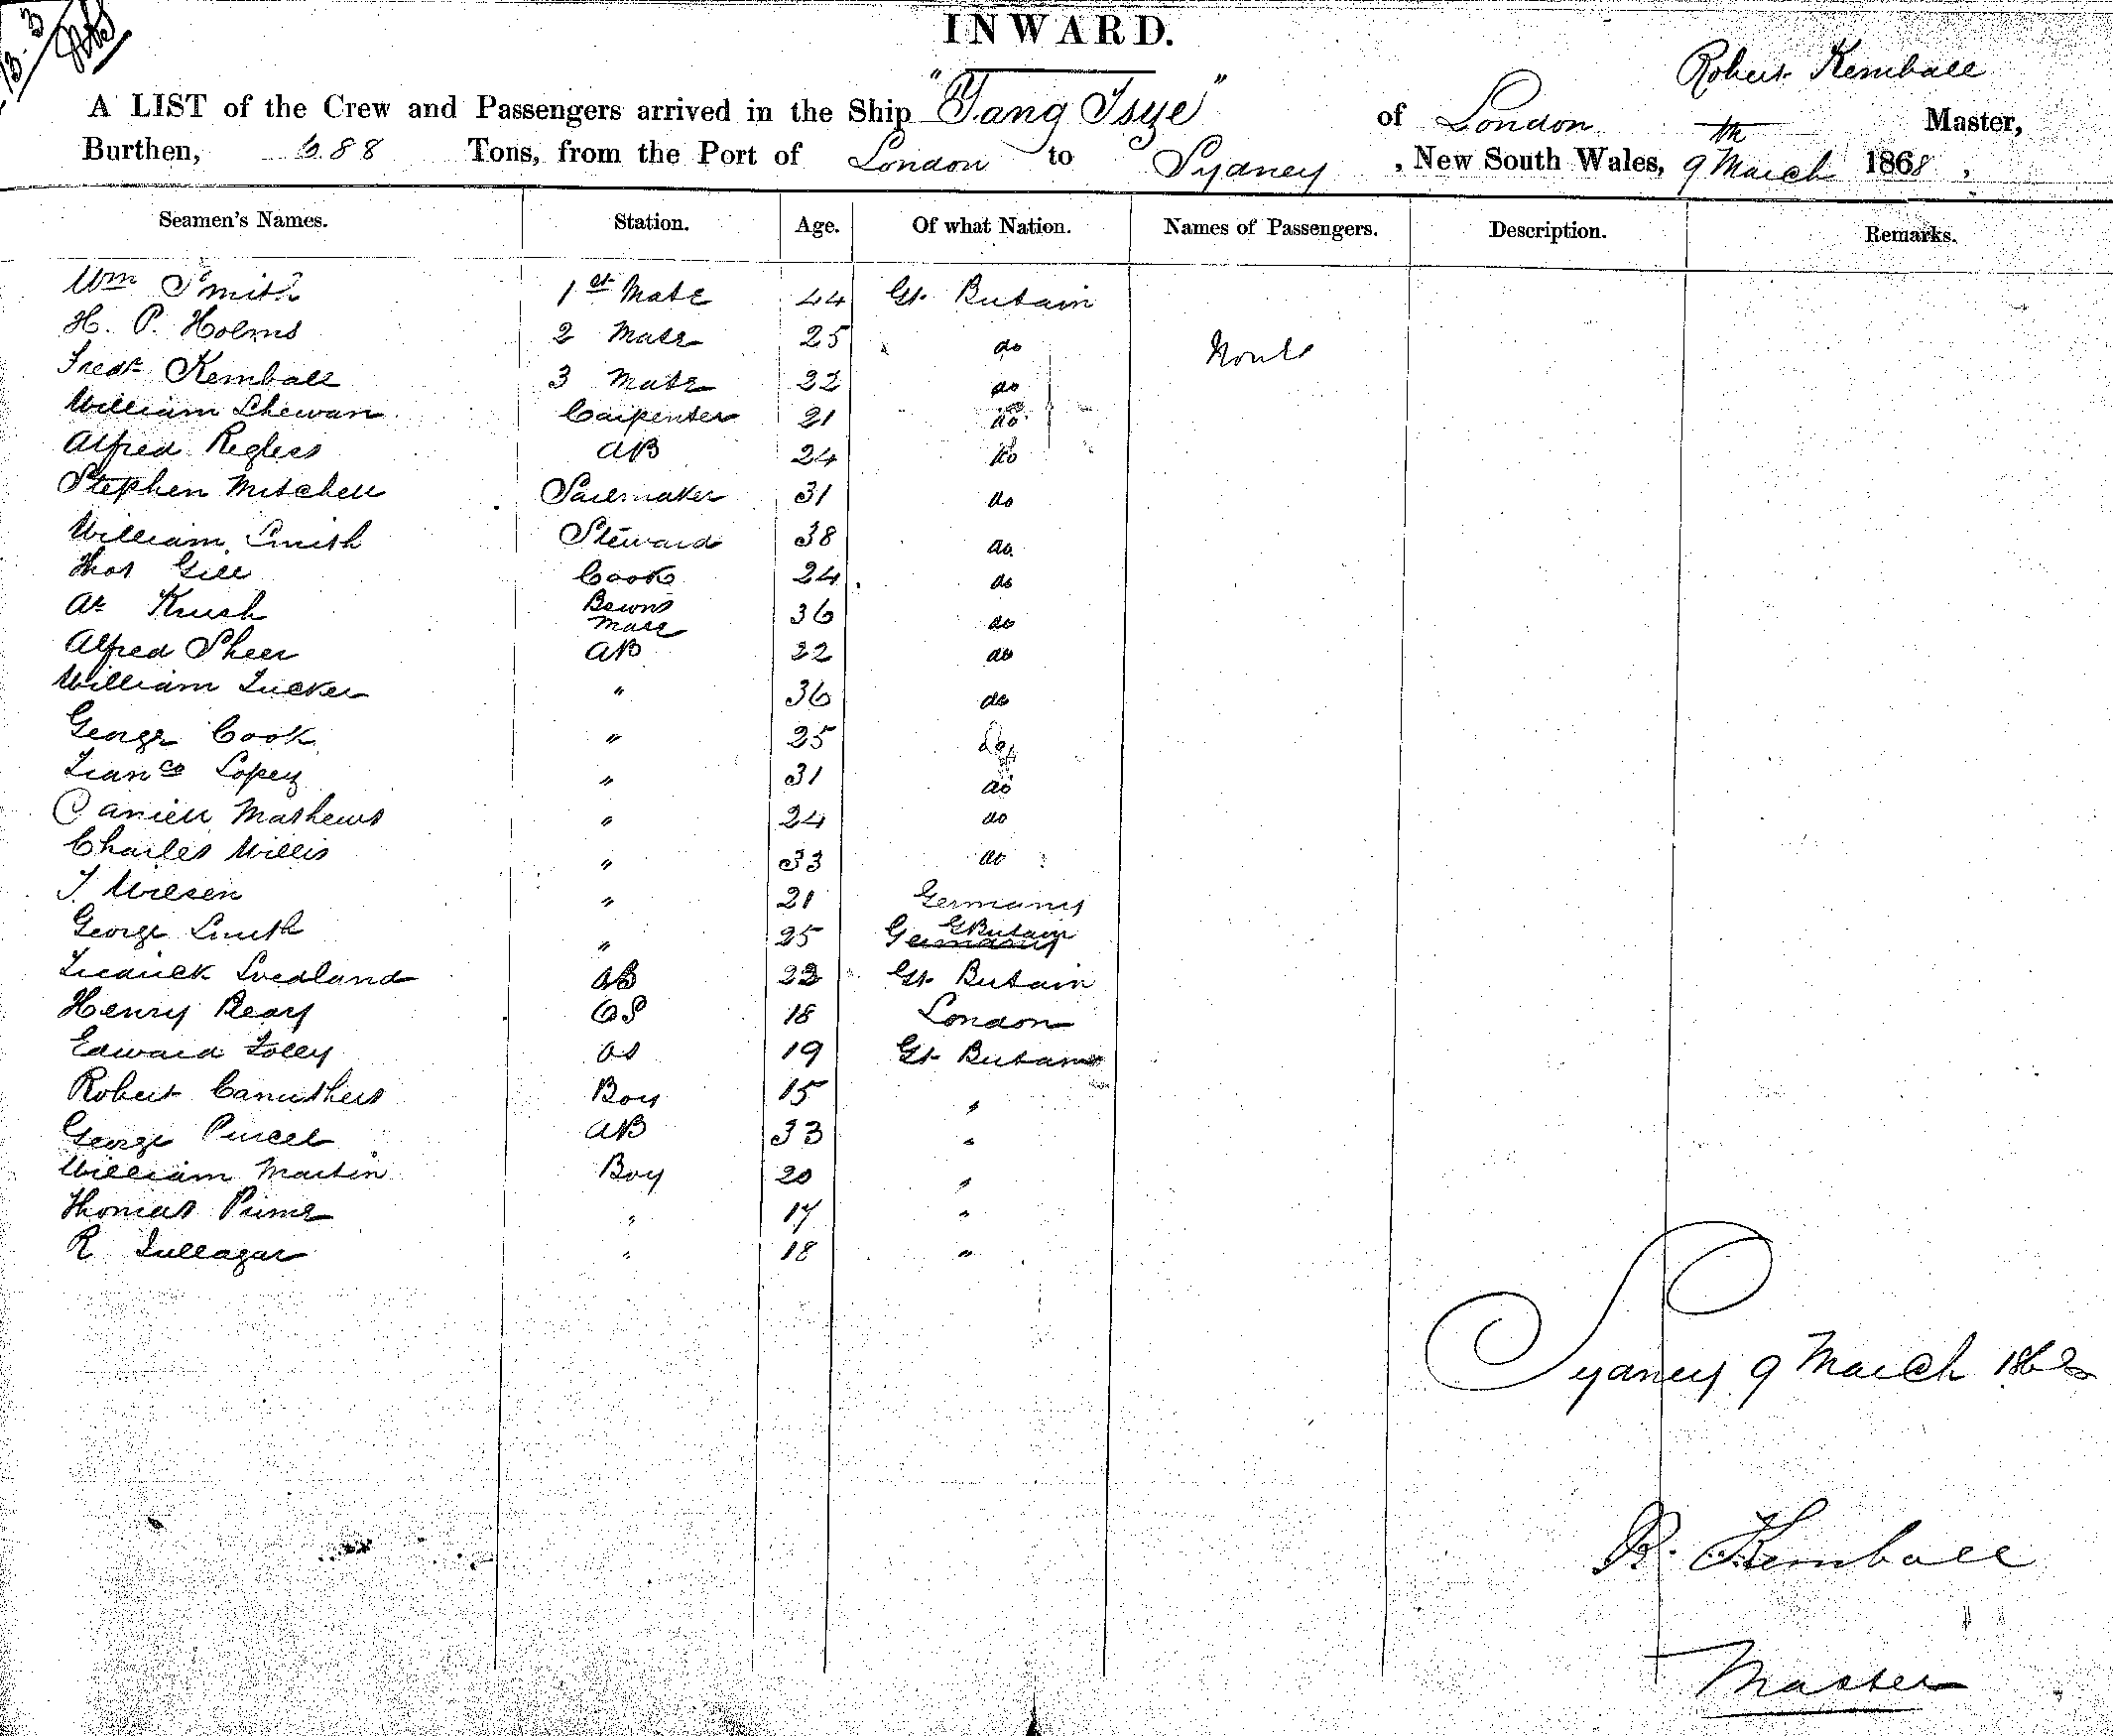 13-3
INWARD.
Robert Kemball
A LIST of the Crew and Passengers arrived in the Ship "Yang Tsze" of London Master,
Burthen, 688 Tons, from the Port of London to Sydney, New South Wales, 9th March 1868,
Seamen's Names. Station. Age. Of what Nation. Names of Passengers. Description. Remarks.
Wm Smith 1st Mate 44 Gt. Britain
H. P. Holms 2 Mate 25 do None
Fredk Kemball 3 Mate 22 do
William Shewan Carpenter 21 do
Alfred Regless AB 24 do
Stephen Mitchell Sailmaker 31 do
William Smith Steward 38 do
Thos Gill Cook 24 do
Ar Krush Bswns Mate 36 do
Alfred Sheer AB 22 do
William Tucker " 36 do
George Cook " 25 do
Franco Lopez " 31 do
Daniell Mathews " 24 do
Charles Willis " 33 do
J. Wilsen " 21 Germany
George Smith " 25 Germany G Britain
Fredrick Svedland AB 22 Gt. Britain
Henry Peary OS 18 London
Edward Folley OS 19 Gt. Britain
Robert Carruthers Boy 15 "
George Purcel AB 33 "
William Martin Boy 20 "
Thomas Prime " 17 "
R Fullagar " 18 "
Sydney 9 March 1868
R. Kemball
Master